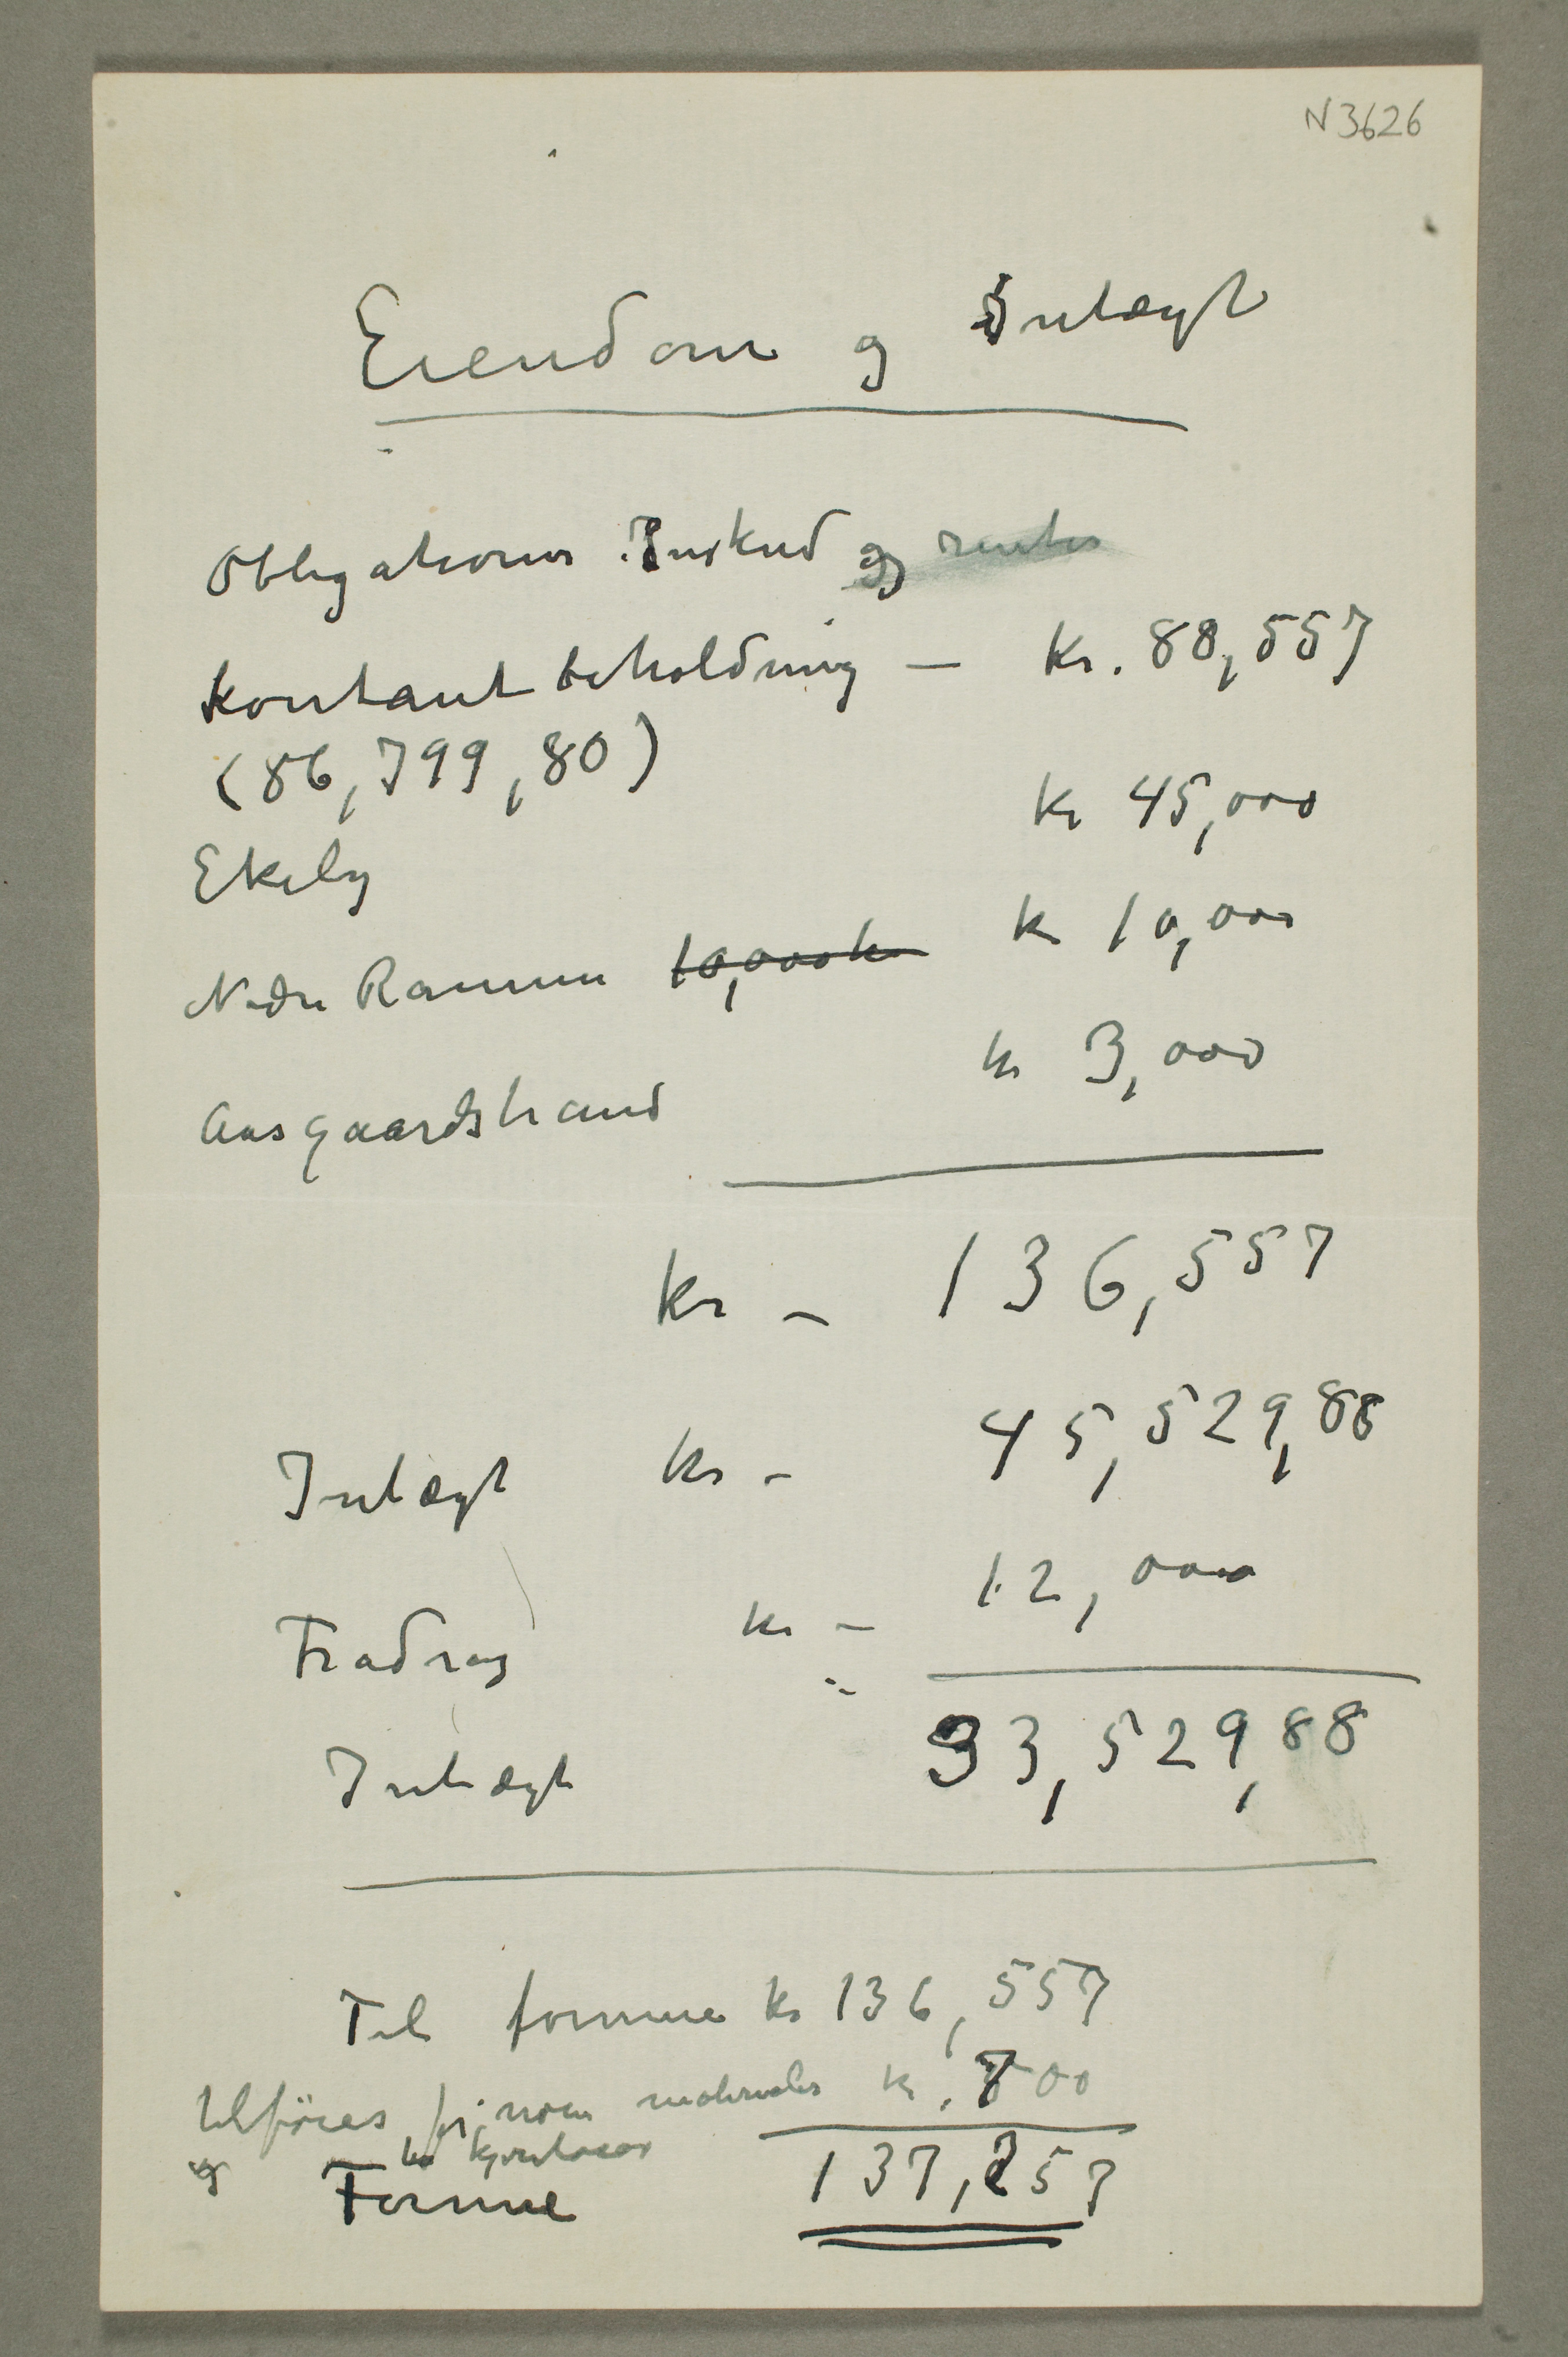 N 3626
Eiendom og Intægt
Obligationer Inskud og renter
Kontantbeholdning – Kr. 88,557
(86,799,80)
Kr 45,000
Ekely
Kr 10,000
Nedre Ramme 10,000 kr
kr 3,000
Aasgaardstrand
Kr – 136,557
Intægt Kr – 45,529,88
Fradrag Kr – 12,000
Intægt 33,529,88
Til formue kr 136,557
tilföies for noen materialer kr. 700
og
Formue 137,257